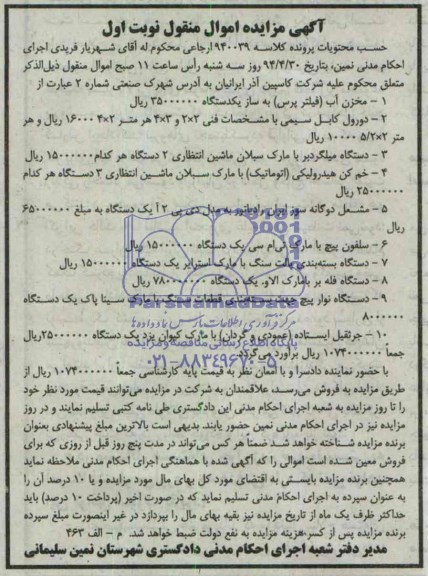 آگهی مزایده اموال منقول نوبت اول
حسب محتویات پرونده کلاسه ۹۴۰۰۳۹ ارجاعی محکوم له آقای شهریار فریدی اجرای
احکام مدنی نمین، بتاریخ ۹۴/۴/۳۰ روز سه شنبه رأس ساعت ۱۱ صبح اموال منقول ذیل‌الذکر
متعلق محکوم علیه شرکت کاسپین آذر ایرانیان به آدرس شهرک صنعتی شماره ۲ عبارت از
۱ - مخزن آب (فیلتر پرس) به ساز یکدستگاه ۳۵۰۰۰۰۰۰ ریال
۲ - دورول کابل سیمی با مشخصات فنی ۲×۲ و ۳×۴ هر متر ۲×۴ ۱۶۰۰۰ ریال و هر
متر ۵/۲×۲ ۱۰۰۰۰ ریال
۳ - دستگاه میلگردبر با مارک سبلان ماشین انتظاری ۲ دستگاه هر کدام ۱۵۰۰۰۰۰۰ ریال
۴ - خم کن هیدرولیکی (اتوماتیک) با مارک سبلان ماشین انتظاری ۲ دستگاه هر کدام
۲۵۰۰۰۰۰۰ ریال
۵ - مشعل دوگانه سوز ایران رادیاتور به مدل دی پی ۲ آ یک دستگاه به مبلغ ۶۵۰۰۰۰۰۰
ریال
۶ - سلفون پیچ با مارک تی‌ام سی یک دستگاه ۱۵۰۰۰۰۰۰ ریال
۷ - دستگاه بسته‌بندی پالت سنگ با مارک استرایر یک دستگاه ۱۵۰۰۰۰۰۰ ریال
۸ - دستگاه فله بر بامارک الاو. یک دستگاه ۷۸۰۰۰۰۰۰۰ ریال
۹ - دستگاه نوار پیچ جهت بسته‌بندی قطعات سنگ با مارک سینا پاک یک دستگاه
۸۰۰۰۰۰۰
۱۰ - جرثقیل ایستاده (عمودی و گردان) با مارک کیوان یزد یک دستگاه ۲۵۰۰۰۰۰۰ ریال
جمعاً ۱۰۷۴۰۰۰۰۰۰ ریال برآورد می‌گردد.
با حضور نماینده دادسرا و با امعان نظر به قیمت پایه کارشناسی جمعاً ۱۰۷۴۰۰۰۰۰۰ ریال از
طریق مزایده به فروش می‌رسد، علاقمندان به شرکت در مزایده می‌توانند قیمت مورد نظر خود
را تا روز مزایده به شعبه اجرای احکام مدنی این دادگستری طی نامه کتبی تسلیم نمایند و در روز
مزایده نیز در اجرای احکام مدنی نمین حضور یابند. بدیهی است بالاترین مبلغ پیشنهادی بعنوان
برنده مزایده شناخته خواهد شد ضمناً هر کس می‌تواند در مدت پنج روز قبل از روزی که برای
فروش معین شده است اموالی را که آگهی شده با هماهنگی اجرای احکام مدنی ملاحظه نماید
همچنین برنده مزایده بایستی به اقتضای مورد کل بهای مال مورد مزایده و یا ۱۰ درصد آن را
به عنوان سپرده به اجرای احکام مدنی تسلیم نماید که در صورت اخیر (پرداخت ۱۰ درصد) باید
حداکثر ظرف یک ماه از تاریخ مزایده نیز بقیه بهای مال را بپردازد در غیر اینصورت مبلغ سپرده
برنده مزایده پس از کسر هزینه مزایده به نفع دولت ضبط خواهد شد. م - الف ۴۶۳
مدیر دفتر شعبه اجرای احکام مدنی دادگستری شهرستان نمین سلیمانی
ParsNamadData
مرکز فرآوری اطلاعات پارس نماد داده‌ها
پایگاه اطلاع رسانی مناقصه و مزایده
۰۲۱-۸۸۳۴۹۶۷۰-۵